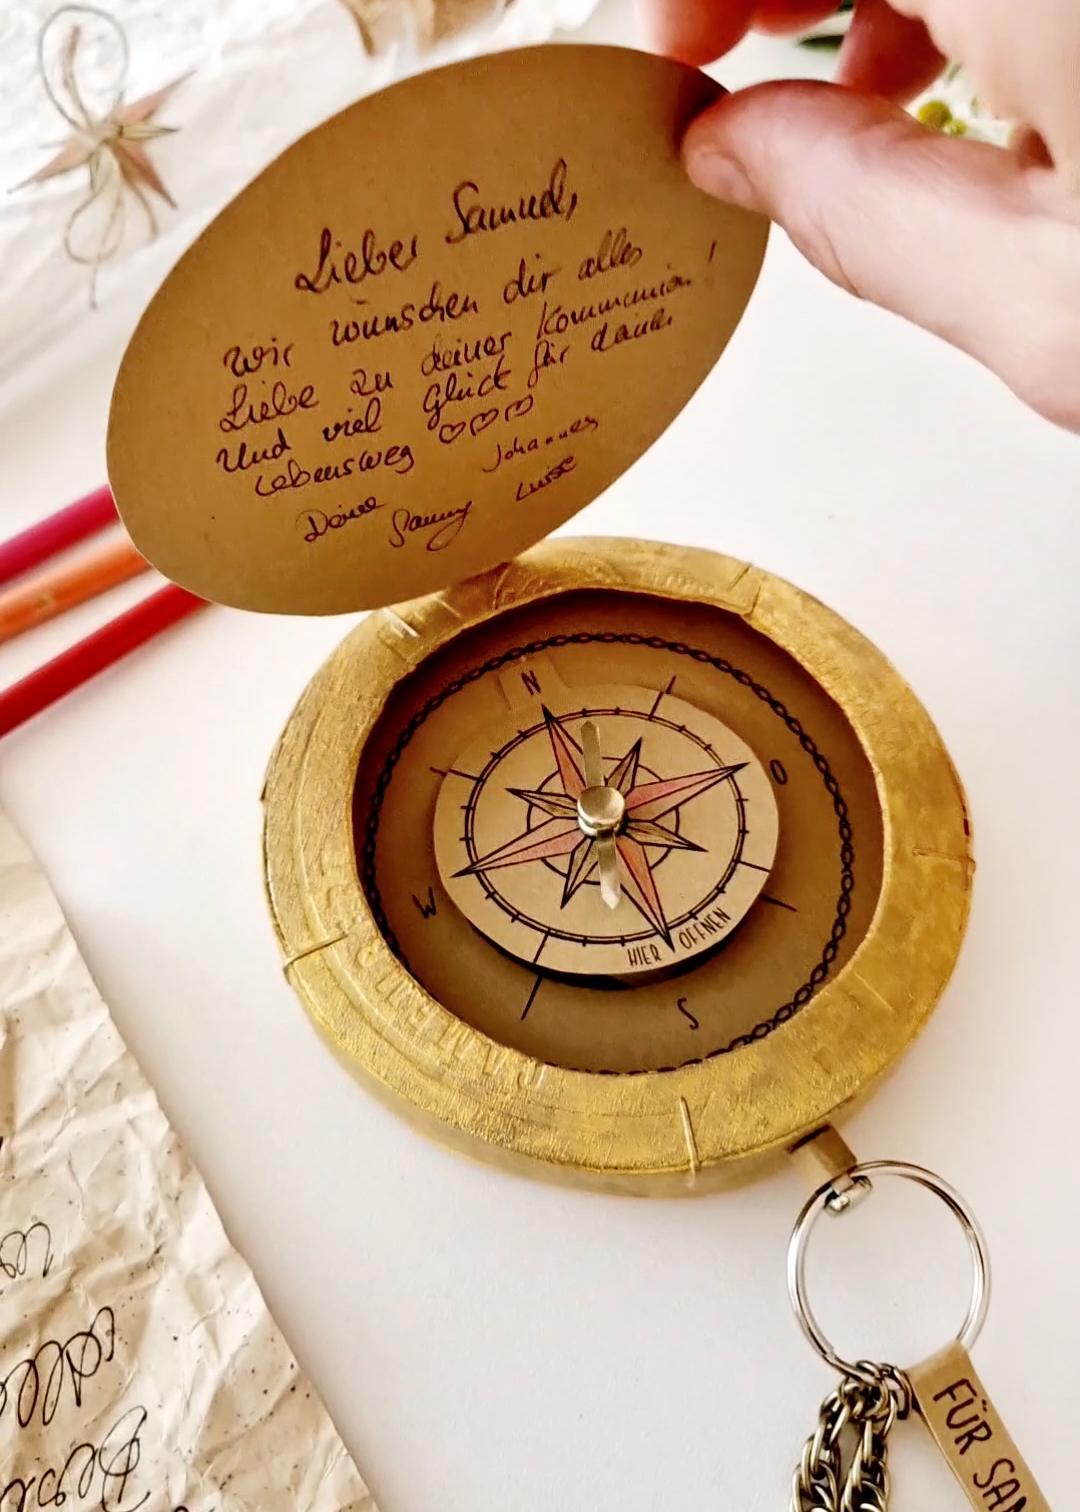 Lieber Samuel,
wir wünschen dir alles
Liebe zu deiner Kommunion!
Und viel Glück für deinen
Lebensweg ♡♡♡
Deine Johannes
Sanny Luise
N
O
W
S
HIER ÖFFNEN
FÜR SAM